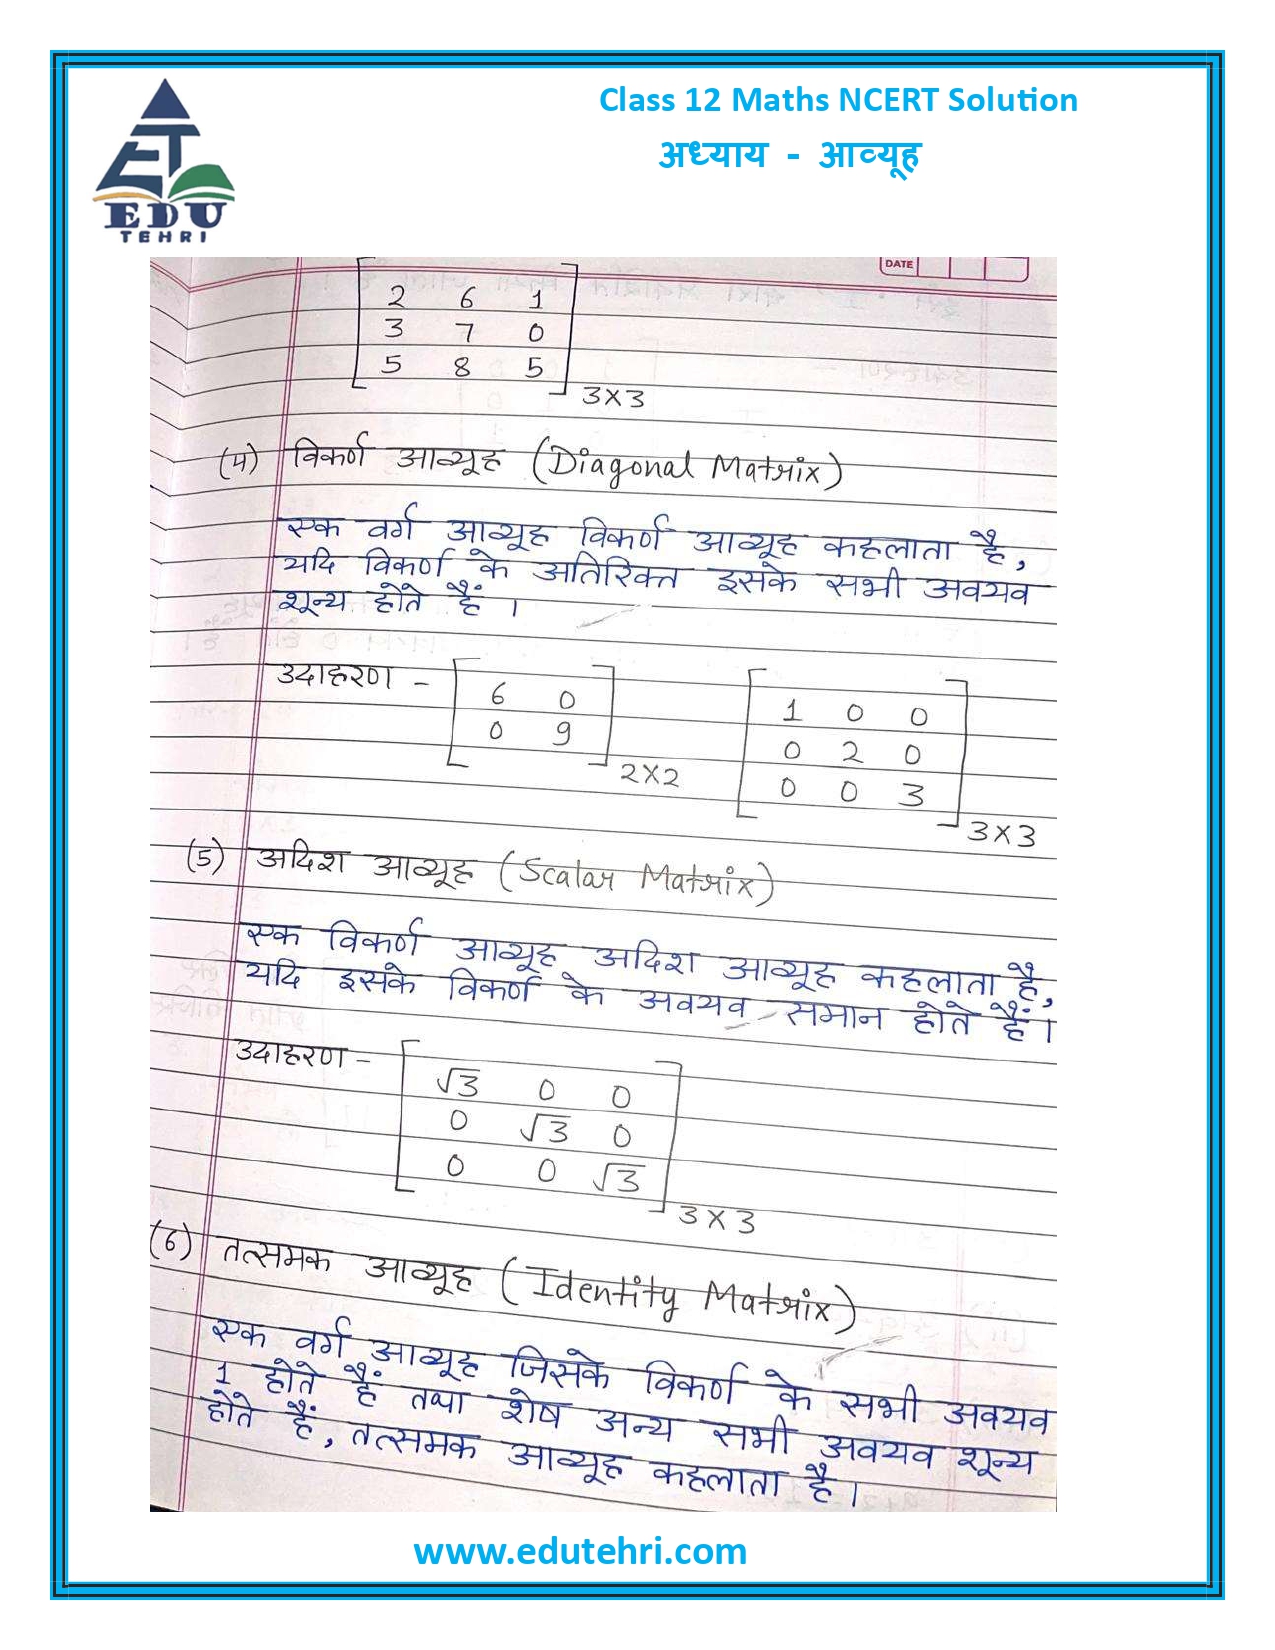 Class 12 Maths NCERT Solution
अध्याय - आव्यूह
EDU
TEHRI
DATE
2 6 1
3 7 0
5 8 5
3×3
(4) विकर्ण आव्यूह (Diagonal Matrix)
एक वर्ग आव्यूह विकर्ण आव्यूह कहलाता है,
यदि विकर्ण के अतिरिक्त इसके सभी अवयव
शून्य होते हैं ।
उदाहरण -
6 0
0 9
2×2
1 0 0
0 2 0
0 0 3
3×3
(5) अदिश आव्यूह (Scalar Matrix)
एक विकर्ण आव्यूह अदिश आव्यूह कहलाता है,
यदि इसके विकर्ण के अवयव समान होते हैं।
उदाहरण -
√3 0 0
0 √3 0
0 0 √3
3×3
(6) तत्समक आव्यूह (Identity Matrix)
एक वर्ग आव्यूह जिसके विकर्ण के सभी अवयव
1 होते हैं तथा शेष अन्य सभी अवयव शून्य
होते हैं, तत्समक आव्यूह कहलाता है।
www.edutehri.com